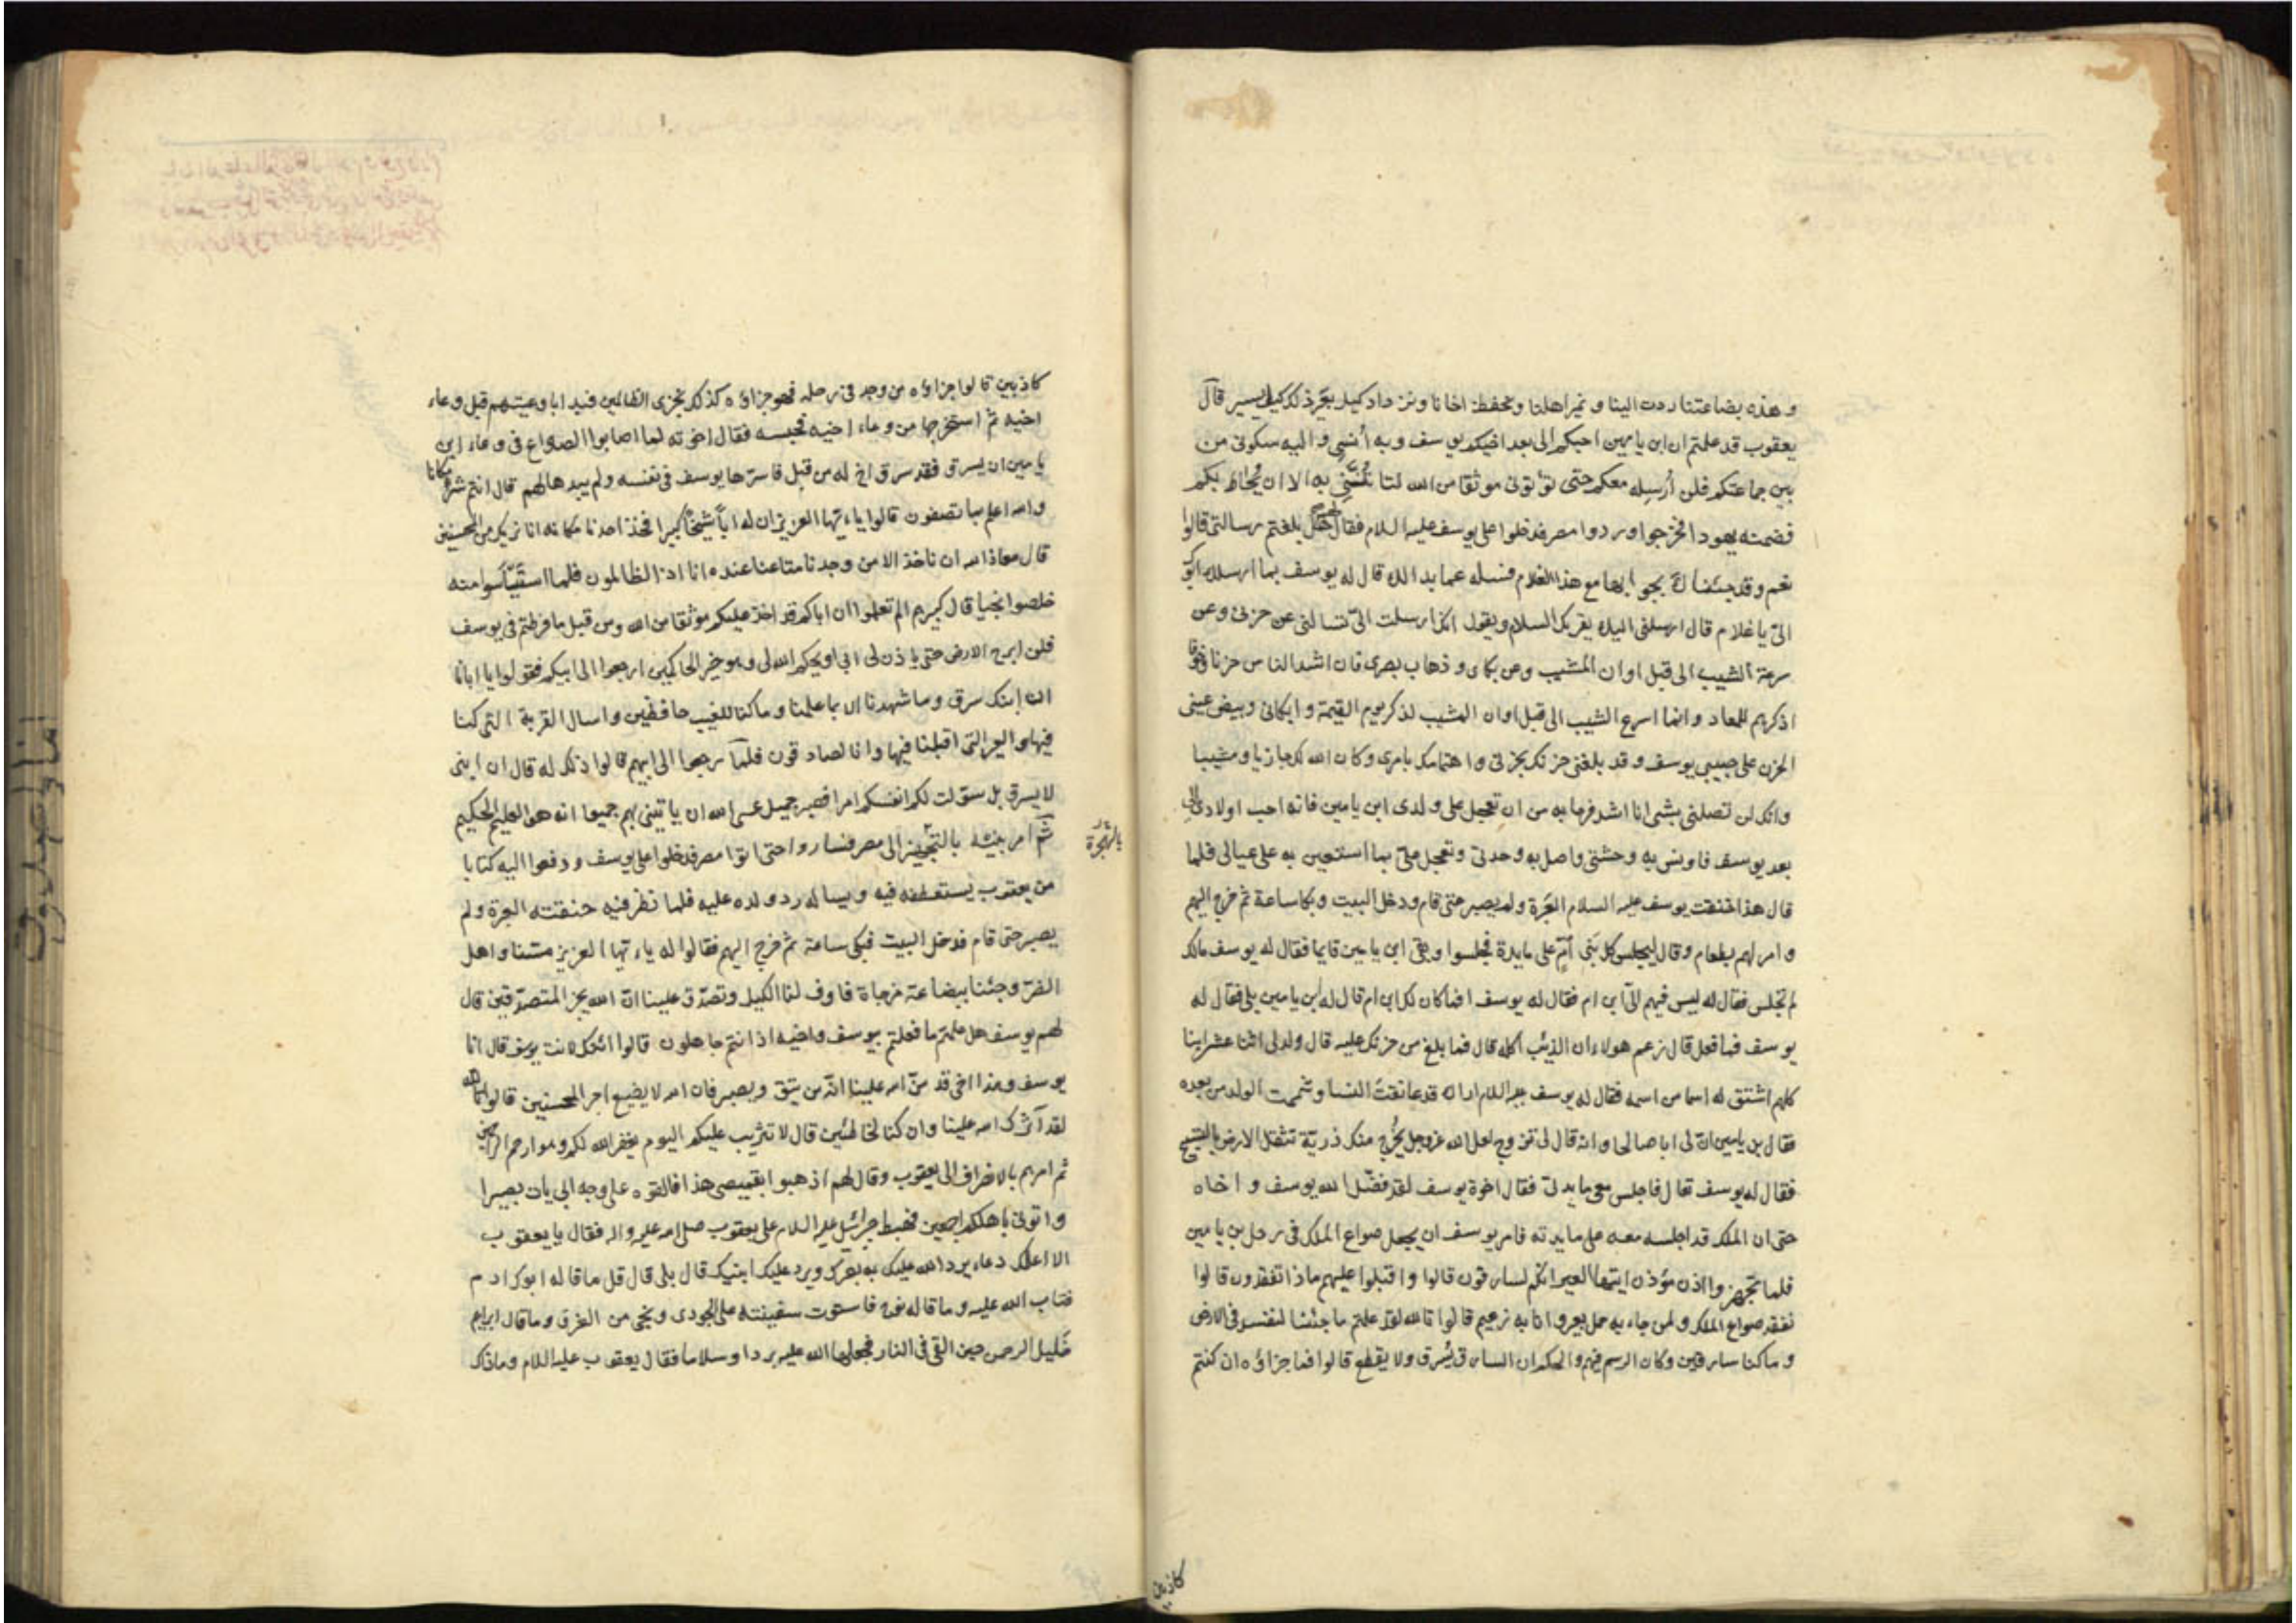 وهذه بضاعتنا ردت الينا ونمير اهلنا ونحفظ اخانا ونزداد كيل بعير ذلك كيل يسير قال
يعقوب قد علمتم ان ابن يامين احبكم الى بعد اخيكم يوسف وبه أُنسي واليه سكوني من
بين جماعتكم فلن أُرسله معكم حتى تؤتوني موثقا من الله لتأتُنَّني به الا ان يُحاط بكم
فضمنه يهودا فخرجوا وردوا مصر فدخلوا على يوسف عليه السلام فقال هل بلغتم رسالتي قالوا
نعم وقد جئناك بجوابها مع هذا الغلام فسله عما بدا لك قال له يوسف بما ارسلك ابوك
الىّ يا غلام قال ارسلني اليك يقريك السلام ويقول انك ارسلت الىّ تسالني عن حزني وعن
سرعة الشيب الى قبل اوان المشيب وعن بكاي وذهاب بصري فان اشد الناس حزنا وخوفا
اذكرهم للمعاد وانما اسرع الشيب الى قبل اوان المشيب لذكر يوم القيمة وابكاني وبيض عيني
الحزن على حبيبي يوسف وقد بلغني حزنك بحزني واهتمامك بامري وكان الله لك جازيا ومثيبا
وانك لن تصلني بشئ انا اشد فرحا به من ان تعجل على ولدي ابن يامين فانه احب اولادي الى
بعد يوسف فاونس به وحشتي واصل به وحدتي وتعجل علىّ بما استعين به على عيالي فلما
قال هذا خنقت يوسف عليه السلام العَبرة ولم يصبر حتى قام ودخل البيت وبكا ساعة ثم خرج اليهم
وامر لهم بطعام وقال ليجلس كل بني أمّ على مايدة فجلسوا وبقى ابن يامين قايما فقال له يوسف مالك
لم تجلس فقال له ليس فيهم لى ابن ام فقال له يوسف افما كان لك ابن ام قال له ابن يامين بلى فقال له
يوسف فما فعل قال زعم هولاء ان الذئب اكله قال فما بلغ من حزنك عليه قال ولد لى اثنا عشر ابنا
كلهم اشتق له اسما من اسمه فقال له يوسف عليه السلام اراك قد عانقت النسا وشممت الولد من بعده
فقال بن يامين انّ لى ابا صالحا وانه قال لى تزوج لعل الله عزوجل يُخرج منك ذريّة تثقل الارض بالتسبيح
فقال له يوسف تعال فاجلس معى على مايدتى فقال اخوة يوسف لقد فضّل الله يوسف واخاه
حتى ان الملك قد اجلسه معه على مايدته فامر يوسف ان يجعل صواع الملك فى رحل بن يامين
فلما تجهزوا اذن مؤذن ايتها العير انكم لسارقون قالوا واقبلوا عليهم ماذا تفقدون قالوا
نفقد صواع الملك ولمن جاء به حمل بعير وانا به زعيم قالوا تالله لقد علمتم ما جئنا لنفسد فى الارض
وما كنا سارقين وكان الرسم فيهم والحكم ان السارق يُسرق ولا يقطع قالوا فما جزاؤه ان كنتم
كاذبين
كاذبين قالوا جزاؤه من وجد فى رحله فهو جزاؤه كذلك نجزى الظالمين فبدا باوعيتهم قبل وعاء
اخيه ثم استخرجها من وعاء اخيه فحبسه فقال اخوته لما اصابوا الصواع فى وعاء ابن
يامين ان يسرق فقد سرق اخ له من قبل فاسرّها يوسف فى نفسه ولم يبدها لهم قال انتم شرّ مكانا
والله اعلم بما تصفون قالوا ياءيّها العزيز ان له اباً شيخاً كبيرا فخذ احدنا مكانه انا نريك من المحسنين
قال معاذ الله ان ناخذ الا من وجدنا متاعنا عنده انا اذا لظالمون فلما استيأسوا منه
خلصوا نجيا قال كبيرهم الم تعلموا ان اباكم قد اخذ عليكم موثقا من الله ومن قبل ما فرطتم فى يوسف
فلن ابرح الارض حتى ياذن لى ابى او يحكم الله لى وهو خير الحاكمين ارجعوا الى ابيكم فقولوا يا ابانا
ان ابنك سرق وما شهدنا الا بما علمنا وما كنا للغيب حافظين واسال القرية التى كنا
فيها والعير التى اقبلنا فيها وانا لصادقون فلمّا رجعوا الى ابيهم قالوا ذلك له قال ان ابنى
لا يسرق بل سوّلت لكم انفسكم امرا فصبر جميل عسى الله ان ياتينى بهم جميعا انه هو العليم الحكيم
ثم امر بنيه بالتجهيز الى مصر فساروا حتى اتوا مصر فدخلوا على يوسف ودفعوا اليه كتابا
من يعقوب يستعطفه فيه ويساله رد ولده عليه فلما نظر فيه خنقته العبرة ولم
يصبر حتى قام فدخل البيت فبكى ساعة ثم خرج اليهم فقالوا له ياءيّها العزيز مسّنا واهلنا
الضرّ وجئنا ببضاعة مزجاة فاوف لنا الكيل وتصدّق علينا انّ الله يجز المتصدّقين قال
لهم يوسف هل علمتم ما فعلتم بيوسف واخيه اذ انتم جاهلون قالوا ائنك لانت يوسف قال انا
يوسف وهذا اخى قد منّ الله علينا انّه من يتق ويصبر فان الله لا يضيع اجر المحسنين قالوا تالله
لقد آثرك الله علينا وان كنا لخاطئين قال لا تثريب عليكم اليوم يغفر الله لكم وهو ارحم الراحمين
ثم امرهم بالانصراف الى يعقوب وقال لهم اذهبوا بقميصى هذا فالقوه على وجه ابى يات بصيرا
واتونى باهلكم اجمعين فهبط جبرائيل عليه السلام على يعقوب صلى الله عليه واله فقال يا يعقوب
الا اعلمك دعاء يرد الله عليك به بصرك ويرد عليك ابنيك قال بلى قال قل ما قاله ابوك ادم
فتاب الله عليه وما قاله نوح فاستوت سفينته على الجودى ونجى من الغرق وما قال ابراهيم
خليل الرحمن حين القى فى النار فجعلها الله عليه بردا وسلاما فقال يعقوب عليه السلام وما ذاك